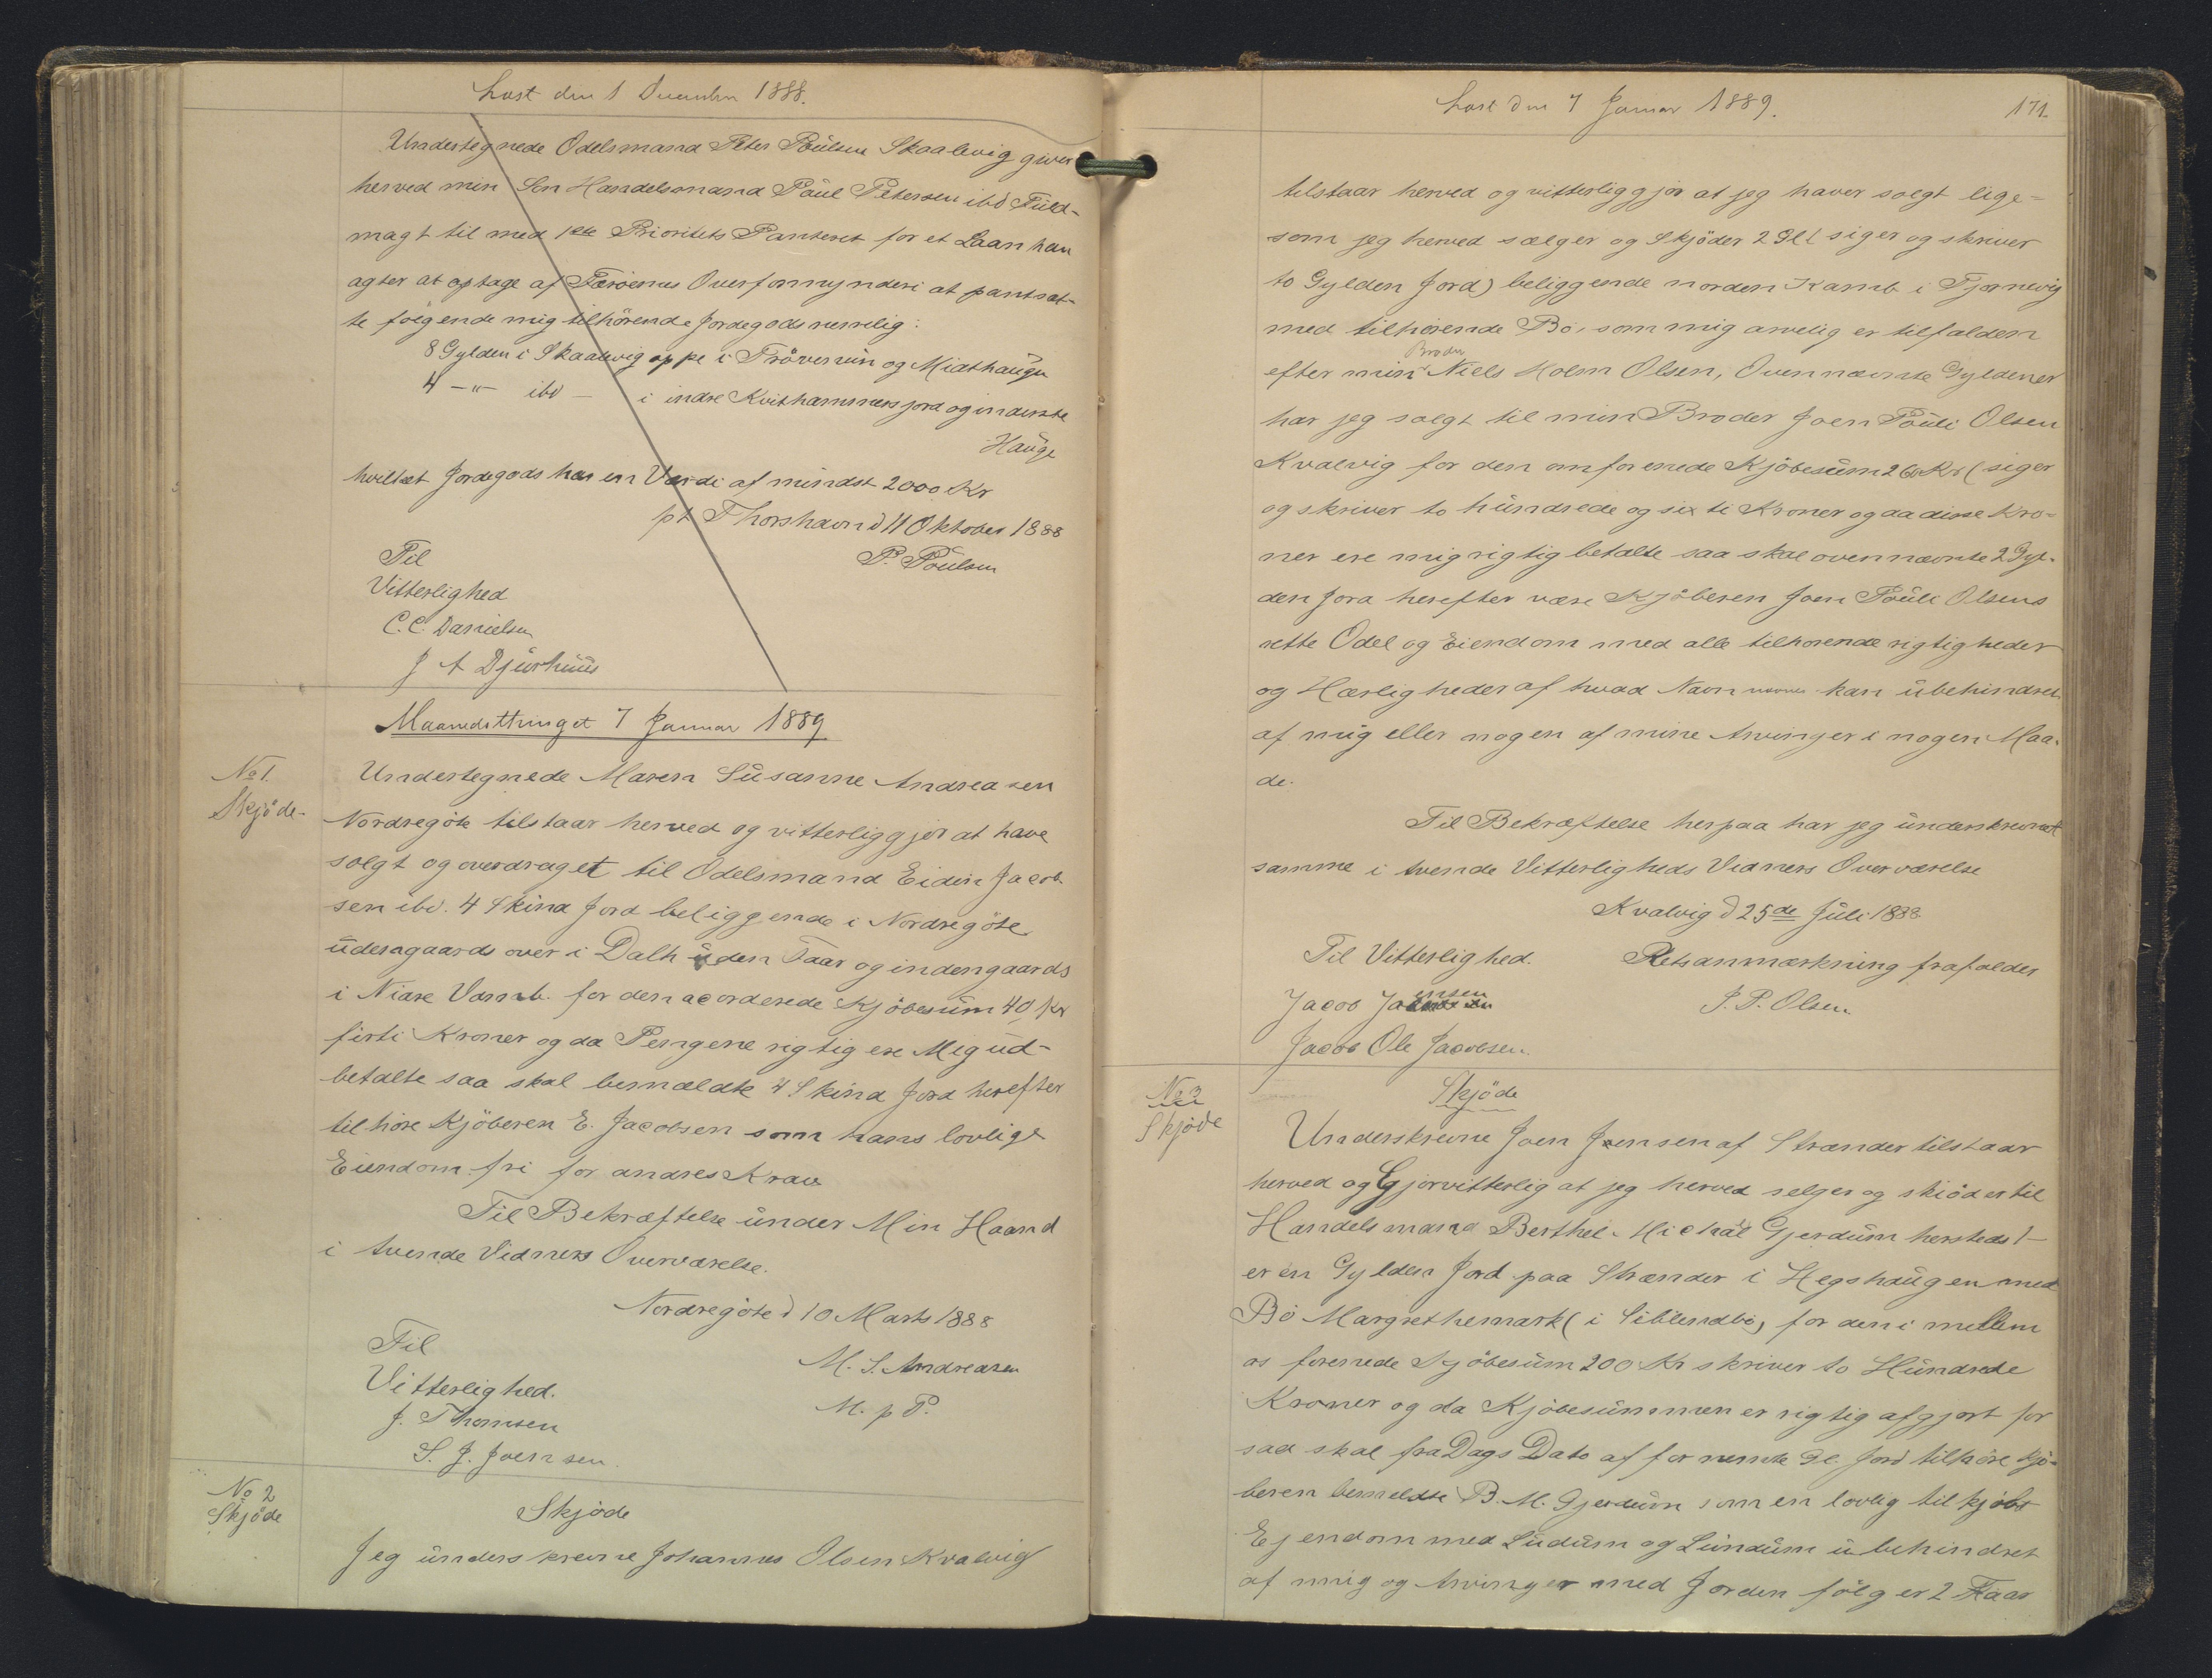 Læst den 1 December 1888.
Undertegnede Odelsmand Peter Poulsen Skaalevig giver
herved min Søn Handelsmand Paul Petersen ibd Fuld-
magt til med 1ste Prioritets Panteret for et Laan han
agter at optage af Færöernes Overformynderi at pantsæt-
te følgende mig tilhörende Jordegods nemlig:
8 Gylden i Skaalevig oppe i Tröverum og Midthaugu
4 -"- ibd - i indre Kvithammersjord og inderste
Hauge
hvilket Jordegods har en Værdi af mindst 2000 Kr
pt Thorshavn d 11 Oktober 1888
P. Poulsen
Til
Vitterlighed
C. C. Danielsen
J A Djurhuus
Maanedsthinget 7 Januar 1889
No 1.
Skjöde-
Undertegnede Maren Susanne Andreasen
Nordregöte tilstaar herved og vitterliggjör at have
solgt og overdraget til Odelsmand Eidin Jacob-
sen ibd. 4 Skind Jord beliggende i Nordregöte
udengaards over i Dalh uden Faar og indengaards
i Niare Vamb. for den acorderede Kjöbesum 40 Kr
firti Kroner og da Pengene rigtig ere Mig ud-
betalte saa skal bemældte 4 Skind Jord herefter
tilhöre Kjöberen E. Jacobsen som hans lovlige
Eiendom fri for andres Krav
Til Bekræftelse under Min Haand
i tvende Vidners Overværelse.
Nordregöte d 10 Marts 1888
Til
Vitterlighed.
M. S. Andreasen
J. Thomsen
M. p P.
S. J. Joensen.
No 2
Skjöde
Skjøde
Jeg underskrevne Johannes Olsen Kvalvig
Læst den 7 Januar 1889.
171.
tilstaar herved og vitterliggjör at jeg haver solgt lige-
som jeg herved sælger og Skjöder 2 Gl (siger og skriver
to Gylden Jord) beliggende norden Kamb i Tjørnevig
med tilhörende Bö, som mig arvelig er tilfalden
Broder
efter min Niels Holm Olsen, Ovennævnte Gyldener
har jeg solgt til min Broder Joen Pouli Olsen
Kvalvig for den omforenede Kjöbesum 260 Kr (siger
og skriver to hundrede og sixti Kroner og da disse Kro-
ner ere mig rigtig betalte saa skal ovennævnte 2 Gyl-
den Jord herefter være Kjöberen Joen Pouli Olsens
rette Odel og Eiendom med alle tilhorende rigtigheder
og Hærligheder af hvad Navn nævnes kan ubehindret
af mig eller nogen af mine Arvinger i nogen Maa-
de.
Til Bekræftelse herpaa har jeg underskrevet
samme i tvende Vitterligheds Vidners Overværelse
Kvalvig d 25de Juli 1888
Til Vitterlighed.
Retsanmærkning frafalder
ensen
Jacob Ja
J. P. Olsen
Jacob Ole Jacobsen.
No 3
Skjöde
Skjöde
Underskrevne Joen Joensen af Strænder tilstaar
herved og Gjorvitterlig at jeg herved selger og skiöder til
Handelsmand Berthel Michal Gjerdum hersteds 1-
er en Gylden Jord paa Strænder i Hegshaugen med
Bö Margrethemark (i Siblendbö) for den i mellem
os forenede Kjöbesum 200 Kr skriver to Hundrede
Kroner og da Kjöbesummen er rigtig afgjort for
saa skal fra Dags Dato af for nemte Gl. Jord tilhöre Kjö-
beren bemeldte B. M. Gjerdum som en lovlig tilkjöbt
Ejendom med Ludum og Lundum ubehindret
af mig og Arvinger med Jorden fölger 2 Faar